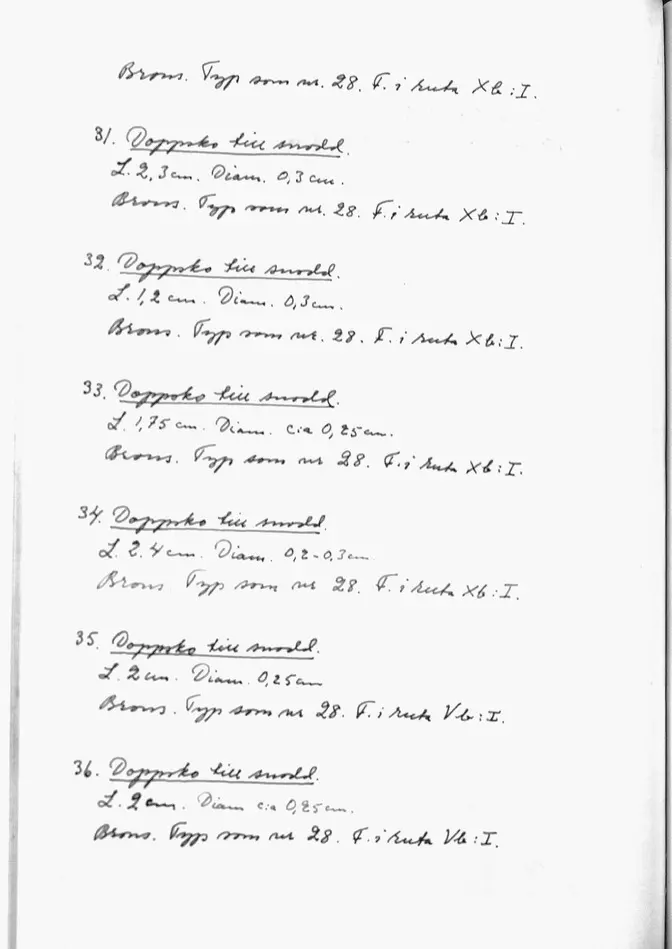 Brons. Typ som nr. 28. F. i ruta Xb:I.
31. Doppsko till snodd.
L. 2,3 cm. Diam. 0,3 cm.
Brons. Typ som nr. 28. F. i ruta Xb:I.
32. Doppsko till snodd.
L. 1,2 cm. Diam. 0,3 cm.
Brons. Typ som nr. 28. F. i ruta Xb:I.
33. Doppsko till snodd.
L. 1,75 cm. Diam. c:a 0,25 cm.
Brons. Typ som nr 28. F. i ruta Xb:I.
34. Doppsko till snodd.
L. 2.4 cm. Diam. 0,2-0,3 cm
Brons Typ som nr 28. F. i ruta Xb:I.
35. Doppsko till snodd.
L. 2 cm. Diam. 0,25 cm
Brons. Typ som nr 28. F. i ruta Vb:I.
36. Doppsko till snodd.
L. 2 cm. Diam c:a 0,25 cm.
Brons. Typ som nr 28. F. i ruta Vb:I.